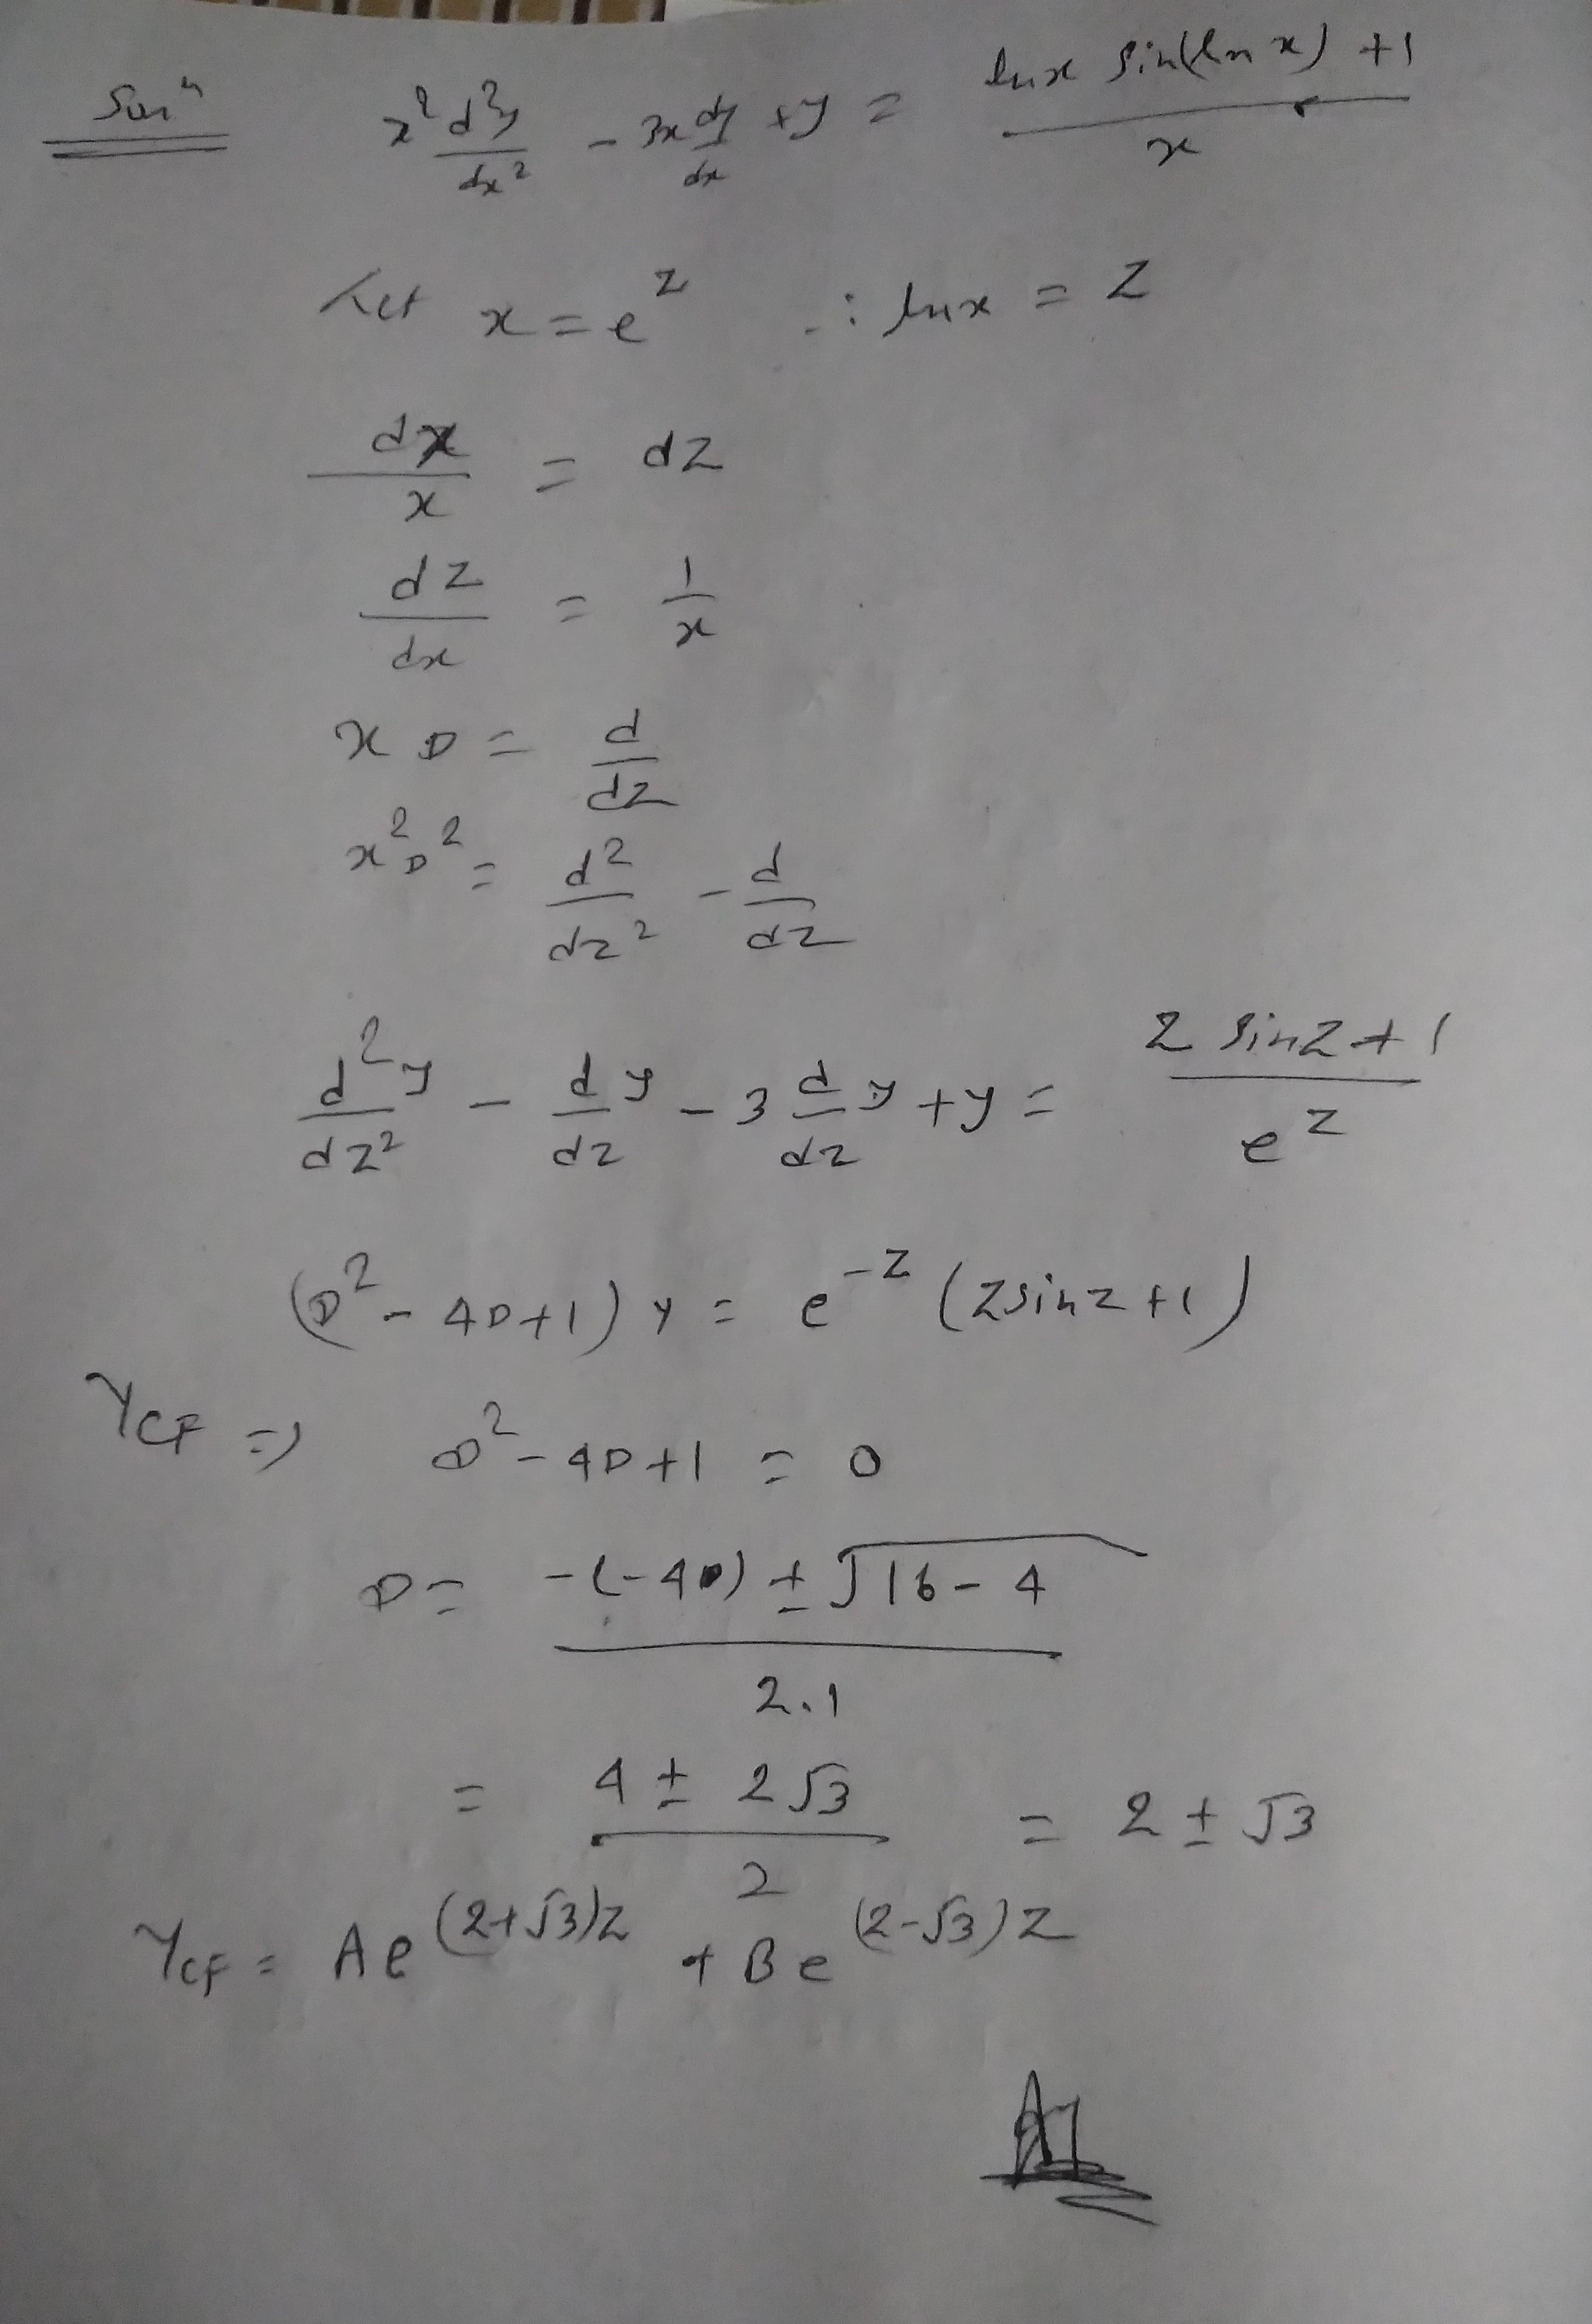 Solⁿ x² d²y/dx² - 3x dy/dx + y = (lnx sin(ln x) + 1)/x
Let x = e^z ∴ lnx = z
dx/x = dz
dz/dx = 1/x
x D = d/dz
x² D² = d²/dz² - d/dz
d²y/dz² - d/dz y - 3 d/dz y + y = (z sinz + 1)/e^z
(D² - 4D + 1) y = e^-z (z sinz + 1)
Y_CF ⇒ D² - 4D + 1 = 0
D = (-(-4) ± √(16 - 4))/2.1
= (4 ± 2√3)/2 = 2 ± √3
Y_CF = A e^(2+√3)z + B e^(2-√3)z